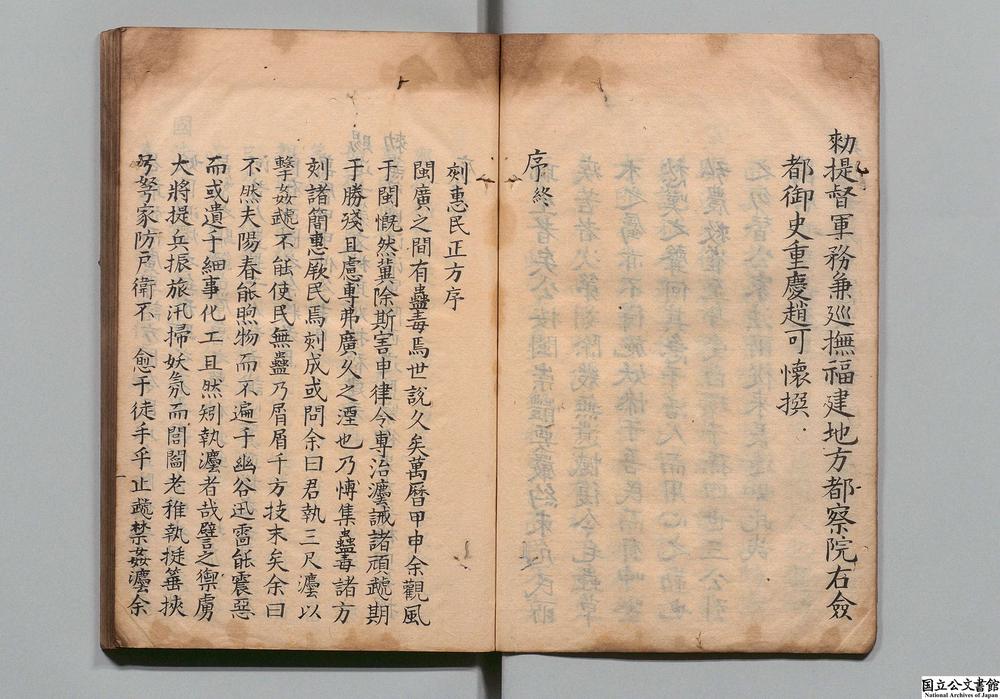 勑提督軍務兼巡撫福建地方都察院右僉
都御史重慶趙可懷撰
序終
刻惠民正方序
閩廣之間有蠱毒焉世說久矣萬曆甲申余觀風
于閩慨然冀除斯害申律令專治灋誡諸頑虣期
于勝殘且慮專弗廣久之湮也乃慱集蠱毒諸方
刻諸簡惠厥民焉刻成或問余曰君執三尺灋以
擊姦虣不能使民無蠱乃屑屑于方技末矣余曰
不然夫陽春能煦物而不遍于幽谷迅雷能震惡
而或遺于細事化工且然矧執灋者哉譬之禦虜
大將提兵振旅汛掃妖氛而閭閻老稚執挺篝挾
弓弩家防户衛不愈于徒手乎止虣禁姦灋余
国立公文書館
National Archives of Japan